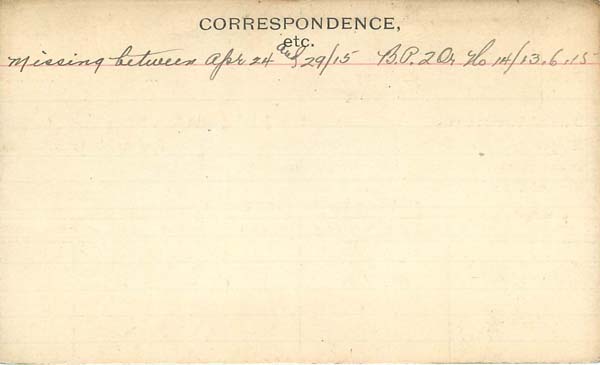 CORRESPONDENCE,
etc.
Missing between Apr 24 and 29/15 B.P. 2 Or No 14/13.6.15